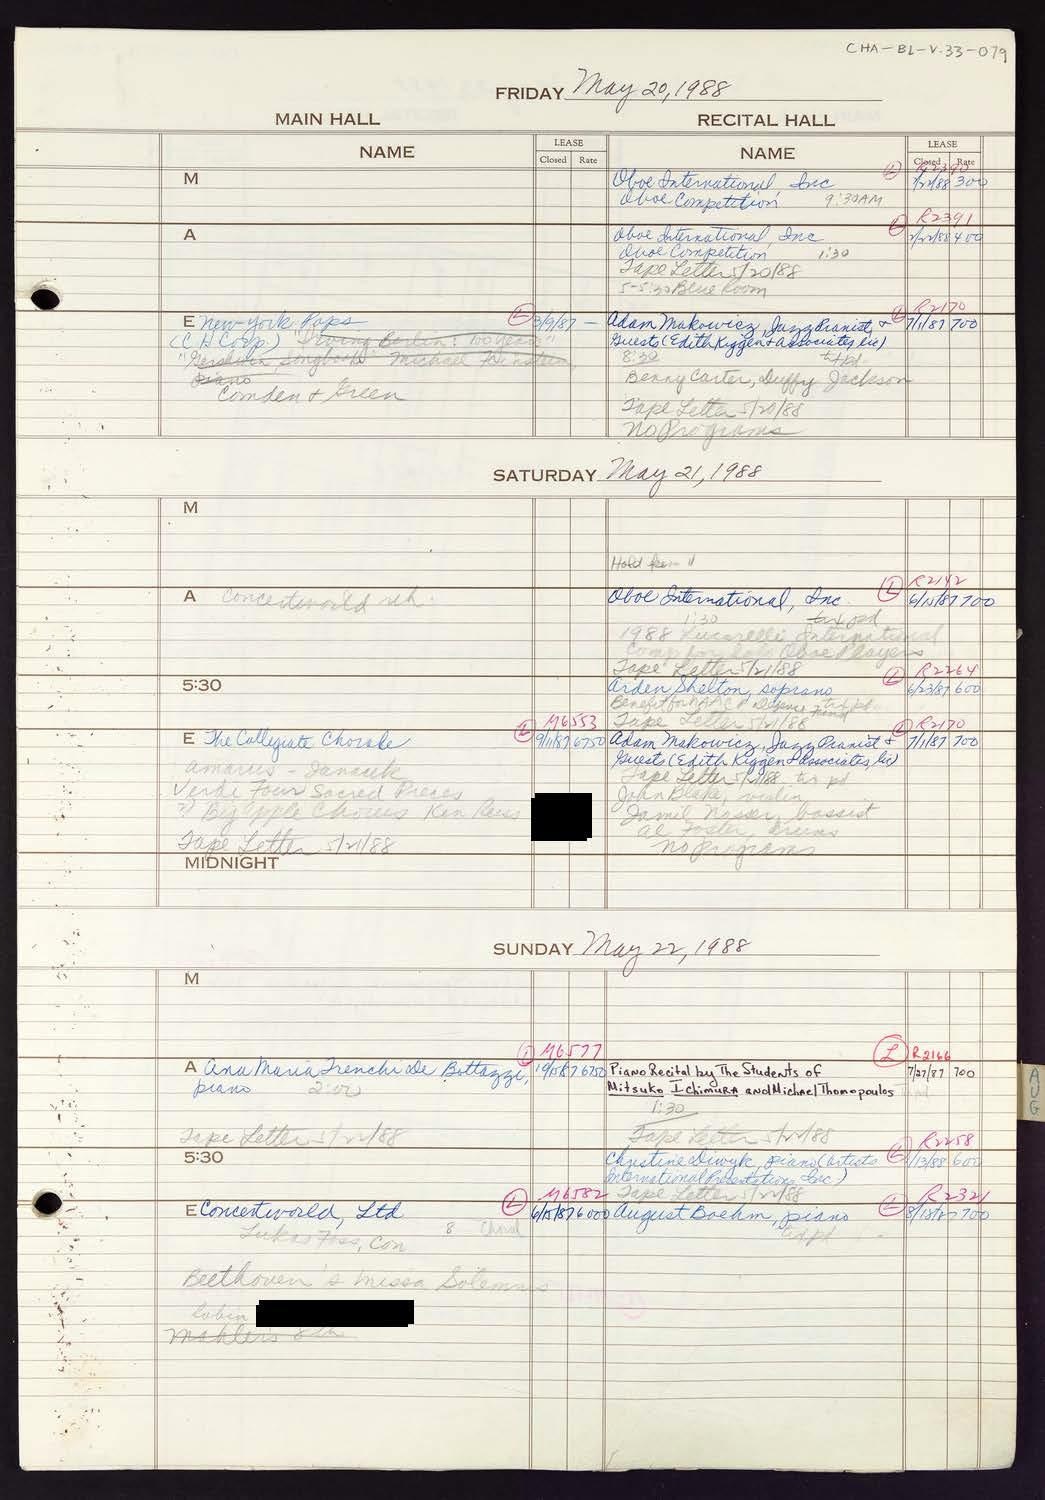 CHA-BL-V.33-079
FRIDAY May 20, 1988
MAIN HALL RECITAL HALL
NAME LEASE NAME LEASE
Closed Rate Closed Rate
M Oboe International, Inc (L) R2390
Oboe Competition 9:30AM 300
A Oboe International, Inc (L) R2391
Oboe Competition 1:30 2/22/88 400
Tape Letter 5/20/88
5-5:30 Blue Room
E New York Pops (L) 3/9/87 — Adam Makowicz, Jazz Pianist & (L) R2170
(CH Corp.) "Irving Berlin: 100 Years" Guests (Edith Kiggen & Associates, Inc) 7/1/87 700
"Gershwin Songbook" Michael Feinstein, 8:30
piano Benny Carter, Duffy Jackson
Comden & Green
Tape Letter 5/20/88
No Programs
SATURDAY May 21, 1988
M
Hold
A Concertworld reh. Oboe International, Inc. (L) R2142
1:30 6/15/87 700
1988 Lucarelli International
Comp for Solo Oboe Players
Tape Letter 5/21/88
5:30 Arden Shelton, soprano (L) R2264
Benefit for NAACP Defense Fund 6/23/87 600
Tape Letter 5/21/88
E The Collegiate Chorale (L) M6553 9/11/87 6750 Adam Makowicz, Jazz Pianist & (L) R2170
Guests (Edith Kiggen & Associates, Inc) 7/1/87 700
Amarus - Janacek Tape Letter 5/21/88
Verdi Four Sacred Pieces John Blake, violin
Big Apple Chorus Ken Jamil Nasser, bassist
Al Foster, drums
Tape Letter 5/21/88 No Programs
MIDNIGHT
SUNDAY May 22, 1988
M
A Ana Maria Trenchi De Bottazzi, (L) M6577 6750 Piano Recital by The Students of (L) R2166
piano 2:00 Mitsuko Ichimura and Michael Thomopoulos 7/27/87 700
1:30
Tape Letter 5/22/88 Tape Letter 5/22/88
5:30 Christine Niwyk, piano (Artists (L) R2258
International Presentations Inc.) 600
Tape Letter 5/22/88
E Concertworld, Ltd (L) M6582 6/15/87 6000 August Boehm, piano (L) R2321
Lukas Foss, Con 8 Choral 8/18/87 700
Beethoven's Missa Solemnis
Robin
Mahler's 8th
AUG